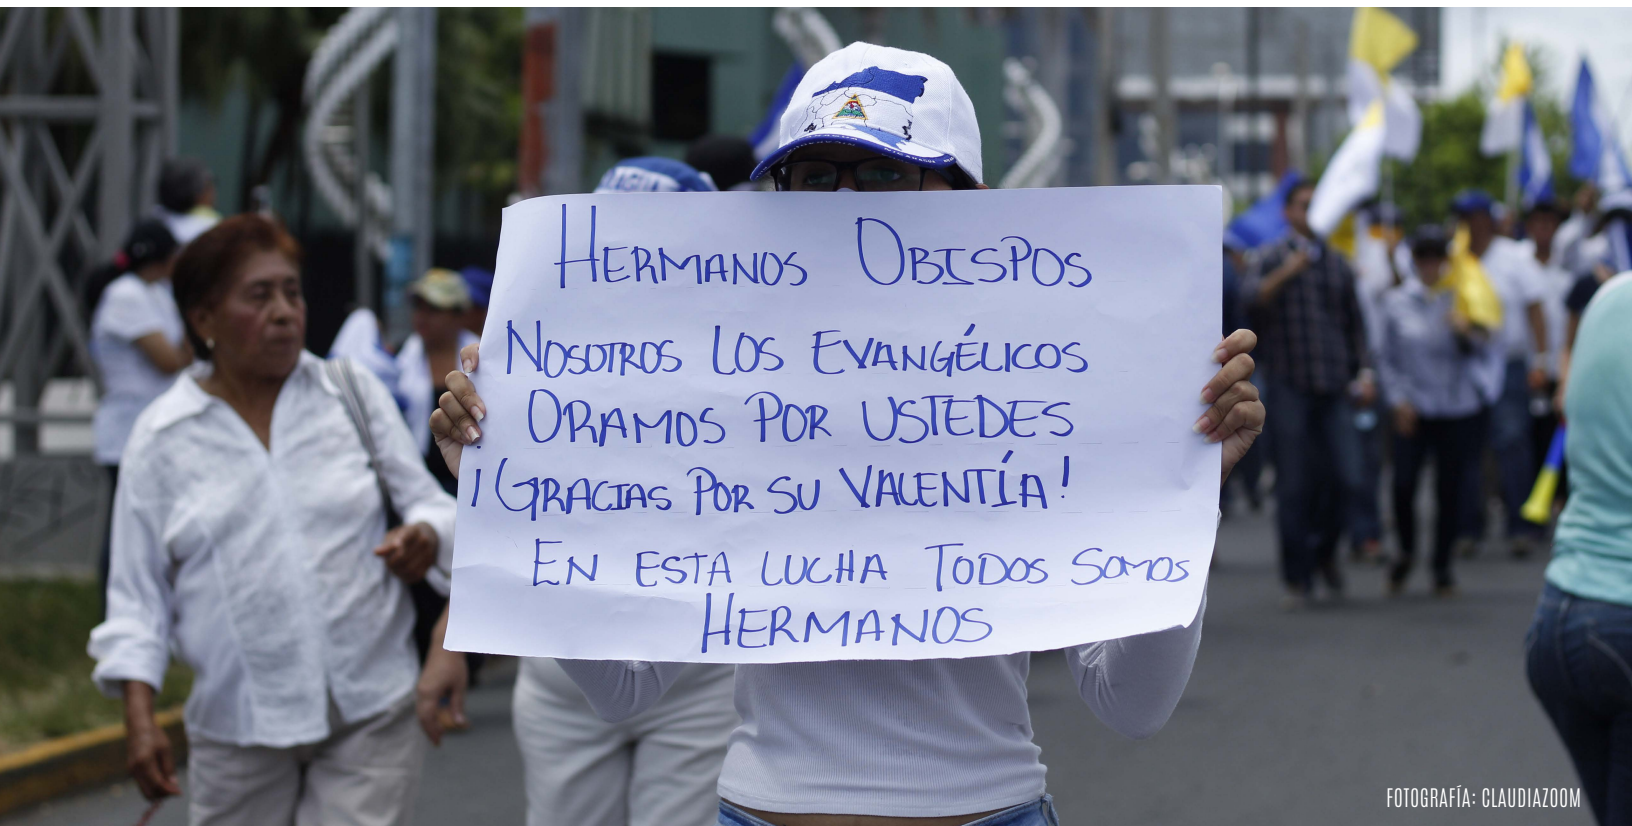 HERMANOS OBISPOS
NOSOTROS LOS EVANGÉLICOS
ORAMOS POR USTEDES
¡GRACIAS POR SU VALENTÍA!
EN ESTA LUCHA TODOS SOMOS
HERMANOS
FOTOGRAFÍA: CLAUDIAZOOM